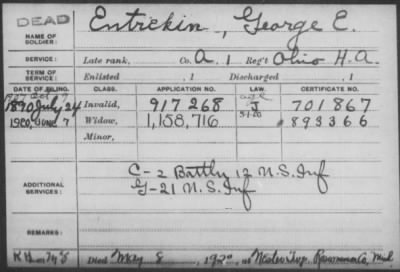 DEAD
Entrekin, George E.
NAME OF SOLDIER:
SERVICE: Late rank, Co. A, 1 Reg't Ohio H.A.
TERM OF SERVICE: Enlisted , 1 Discharged , 1
DATE OF FILING. CLASS. APPLICATION NO. LAW. CERTIFICATE NO.
1890 July 24 Invalid, 917 268 J 701867
1920, June 7 Widow, 1,158,716 5-1-20 893366
Minor,
ADDITIONAL SERVICES: C-2 Battln 12 U.S. Inf
G-21 U.S. Inf
REMARKS:
Died May 8, 1920 at